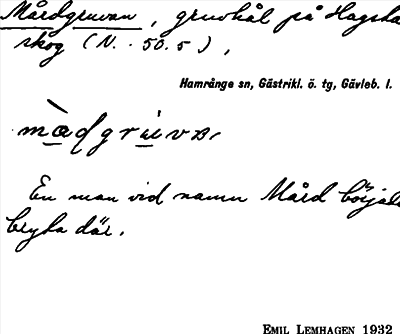 Mårdgruvan, gruvhål på Hagsta
skog (N. 50. 5),
Hamrånge sn, Gästrikl. ö. tg, Gävleb. l.
En man vid namn Mård börja
bryta där.
EMIL LEMHAGEN 1932